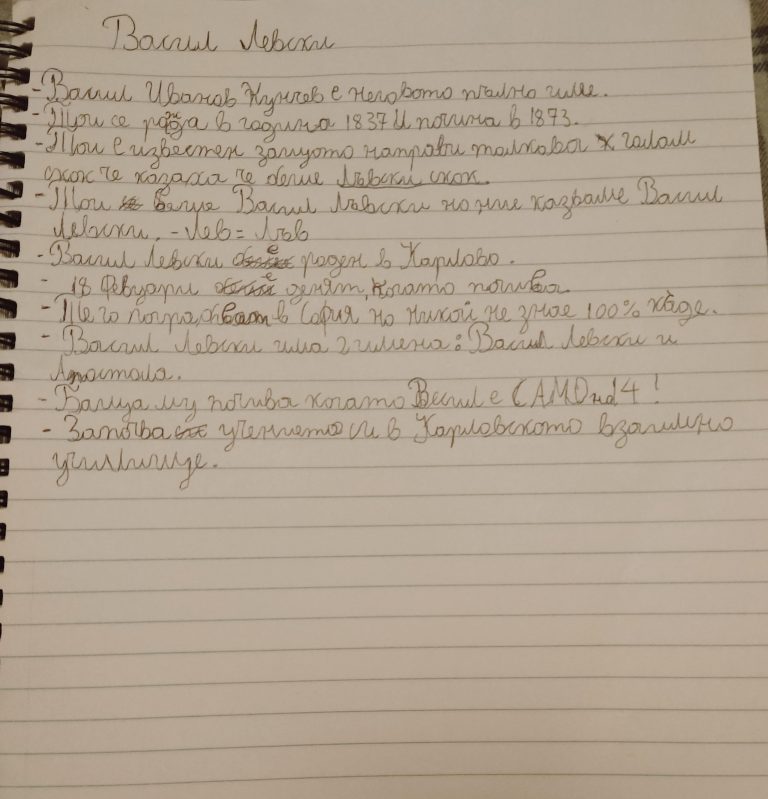 Васил Левски
- Васил Иванов Кунчев е неговото пълно име.
- Той се ражда в година 1837 и почина в 1873.
- Той е известен защото направи толкова голям
скок че казаха че беше Лъвски скок.
- Той беше Васил Лъвски но ние казваме Васил
Левски. - Лев = Лъв
- Васил Левски е роден в Карлово.
- 18 Февуари е денят, когато почива.
- Те го погребват в София но никой не знае 100% къде.
- Васил Левски има 2 имена: Васил Левски и
Апостола.
- Баща му почива когато Васил е САМО на 14!
- Започва учението си в Карловското взаимно
училище.